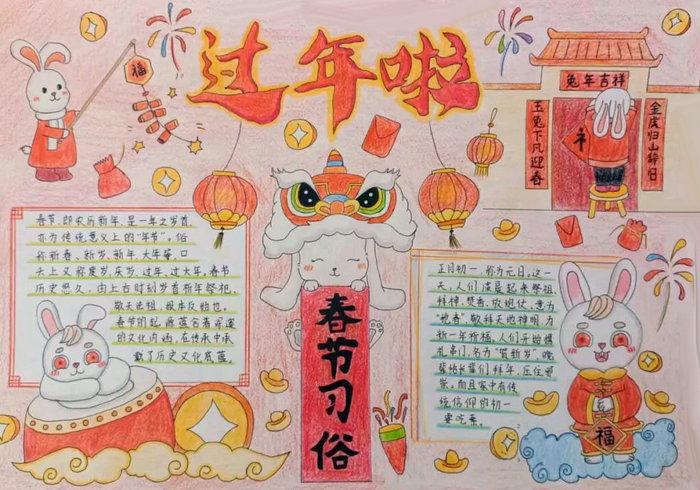 过年啦
福
兔年吉祥
玉兔下凡迎春
金虎归山辞旧
春节习俗
春节,即农历新年,是一年之岁首,
亦为传统意义上的"年节"。俗
称新春、新岁、新年、大年等,口
头上又称度岁、庆岁、过年、过大年。春节
历史悠久,由上古时刻岁首新年祭祀,
敬天法祖、报本反始也。
春节的起源蕴含着深邃
的文化内涵,在传承中承
载了历史文化底蕴
正月初一,称为元日,这一
天,人们清晨起来祭祖
拜神,焚香、放炮仗,意为
敬拜天地神明,为
新一年祈福。人们开始携
礼串们,名为"贺新岁"。晚
辈给长辈们拜年,压住邪
祟。而且家中有传
统信仰的初一
要吃素。
福